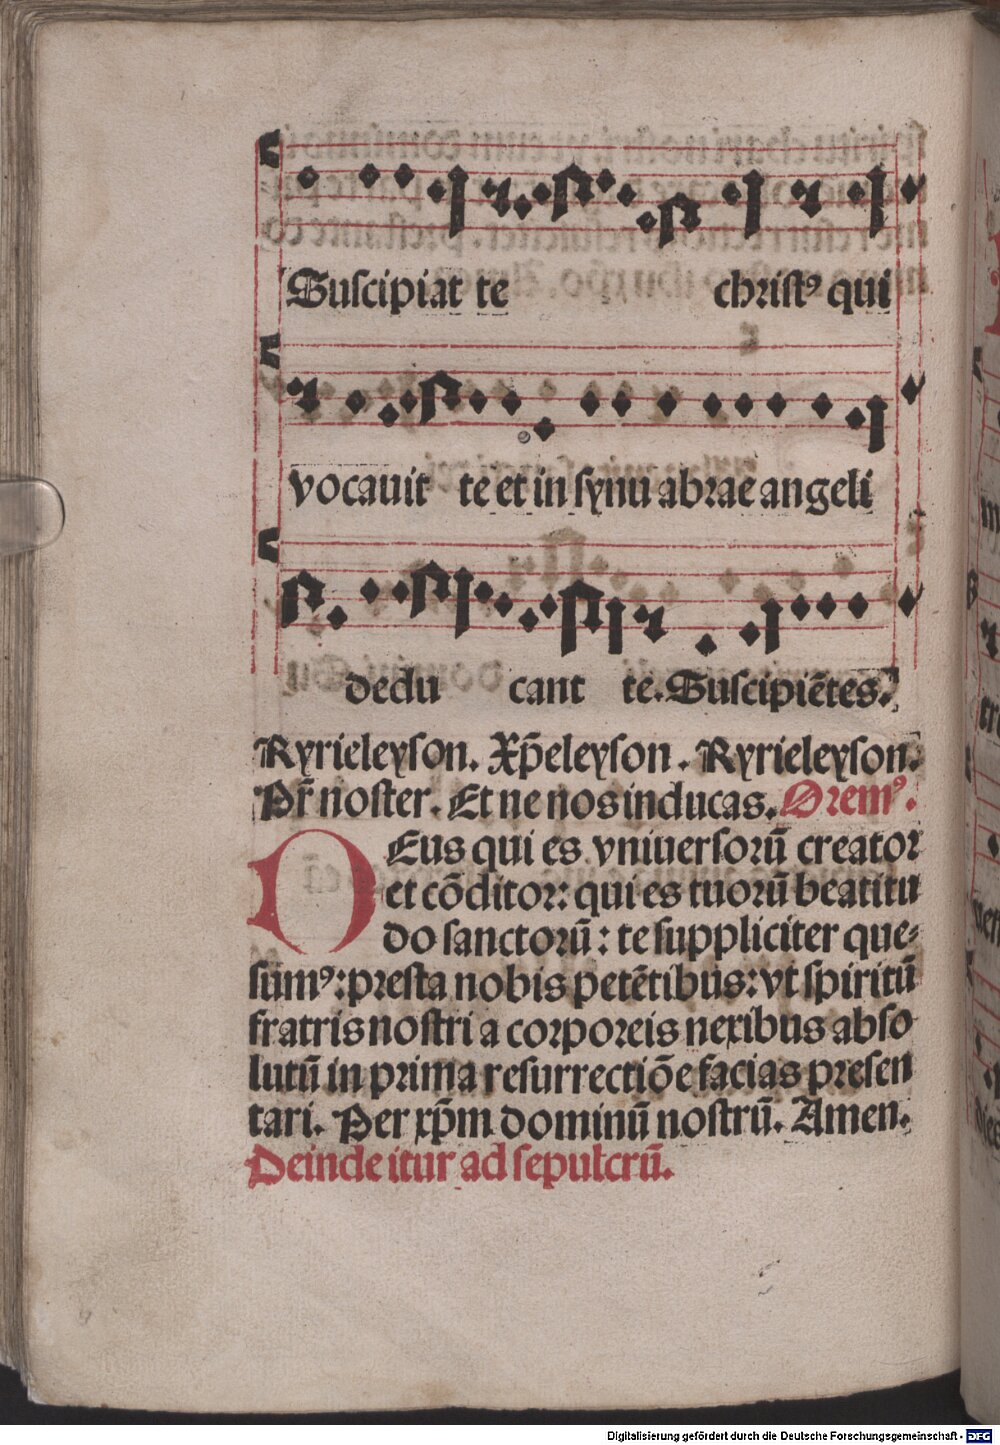 Suscipiat te christꝰ qui
vocauit te et in synu abrae angeli
dedu cant te. Suscipiētes.
Kyrieleyson. Xp̄eleyson. Kyrieleyson.
Pr̄ noster. Et ne nos inducas. Oremꝰ.
DEus qui es vniuersorū creator
et cōditor: qui es tuorū beatitu
do sanctorū: te suppliciter que⸗
sumꝰ: presta nobis petētibus: vt spiritū
fratris nostri a corporeis nexibus abso
lutū in prima resurrectiōe facias presen
tari. Per xp̄m dominū nostrū. Amen.
Deinde itur ad sepulcrū.
Digitalisierung gefördert durch die Deutsche Forschungsgemeinschaft - DFG